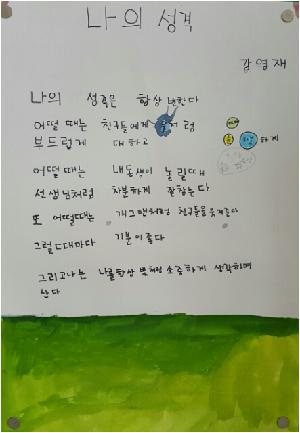 나의 성격
강영재
나의 성격은 항상 변한다
어떨 때는 친구들에게 처럼
부드럽게 대하고 하게
어떨때는 내동생이 놀릴때
선생님처럼 차분하게 잘참는다
또 어떨때는 개그맨처럼 친구들을 웃겨준다
그럴때마다 기분이 좋다
그리고나는 나를항상 처럼소중하게 생각하며
산다